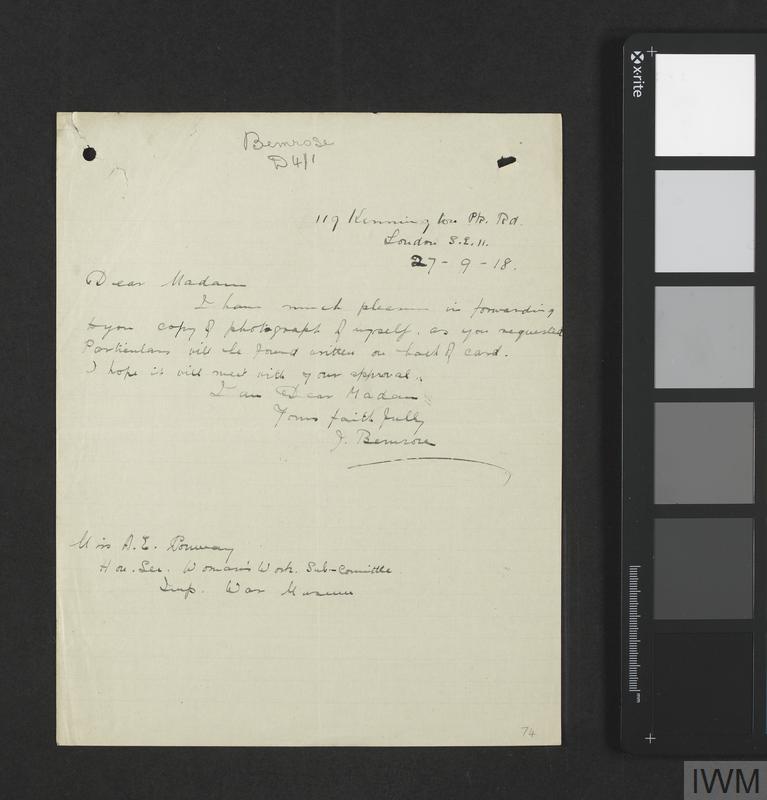 Bemrose
D4/1
119 Kennington Pk. Rd.
London S.E. 11.
27-9-18.
Dear Madam
I have much pleasure in forwarding
to you copy of photograph of myself. as you requested
Particulars will be found written on back of card.
I hope it will meet with your approval.
I am Dear Madam
Yours faithfully
J. Bemrose
Miss A.E. Conway
Hon. Sec. Woman's Work. Sub-Committee.
Imp. War Museum
74
x-rite
mm
IWM